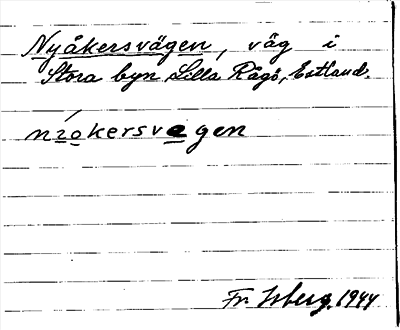 Nyåkersvägen, väg i
Stora byn Lilla Rågö, Estland.
nzokersvagen
Fr Isberg, 1944